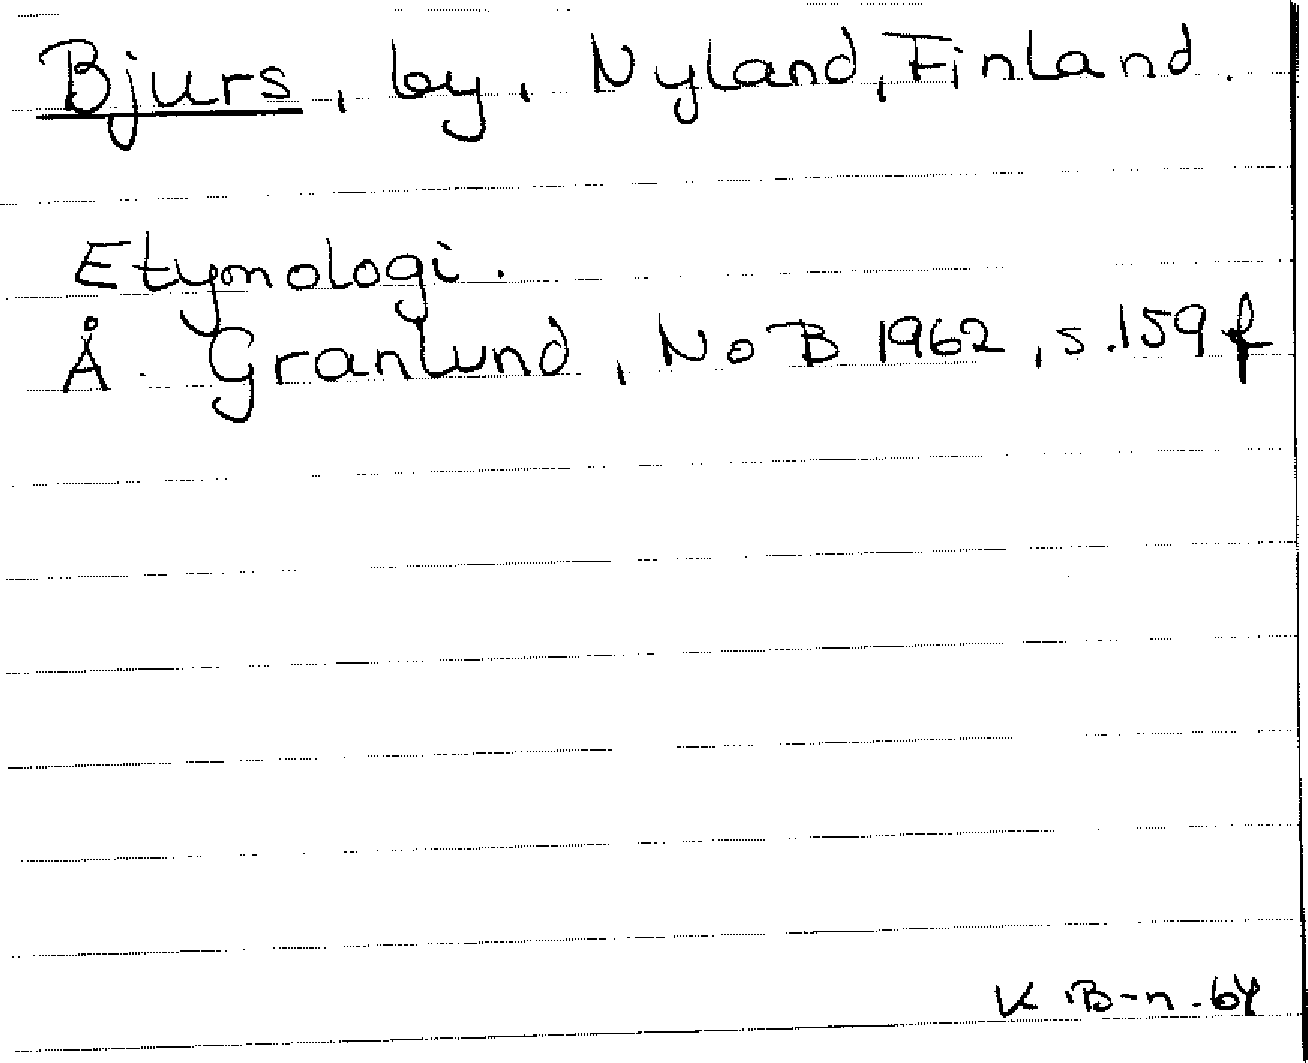 Bjurs, by, Nyland, Finland.
Etymologi.
Å. Granlund, NoB 1962, s.159 f
K B-n. 64